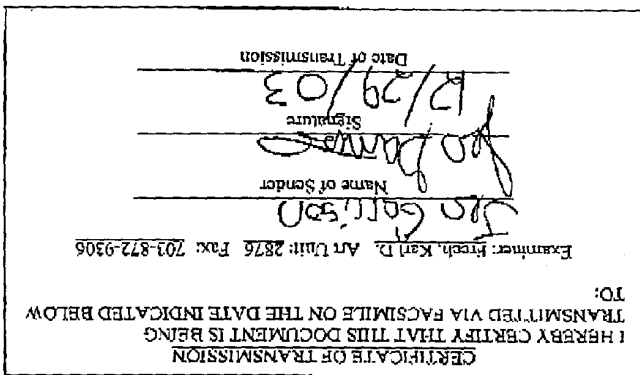 CERTIFICATE OF TRANSMISSION
I HEREBY CERTIFY THAT THIS DOCUMENT IS BEING
TRANSMITTED VIA FACSIMILE ON THE DATE INDICATED BELOW
TO:
Examiner: Frech, Karl D. Art Unit: 2876 Fax: 703-872-9306
Jen Garrison
Name of Sender
Jen
Signature
12/29/03
Date of Transmission